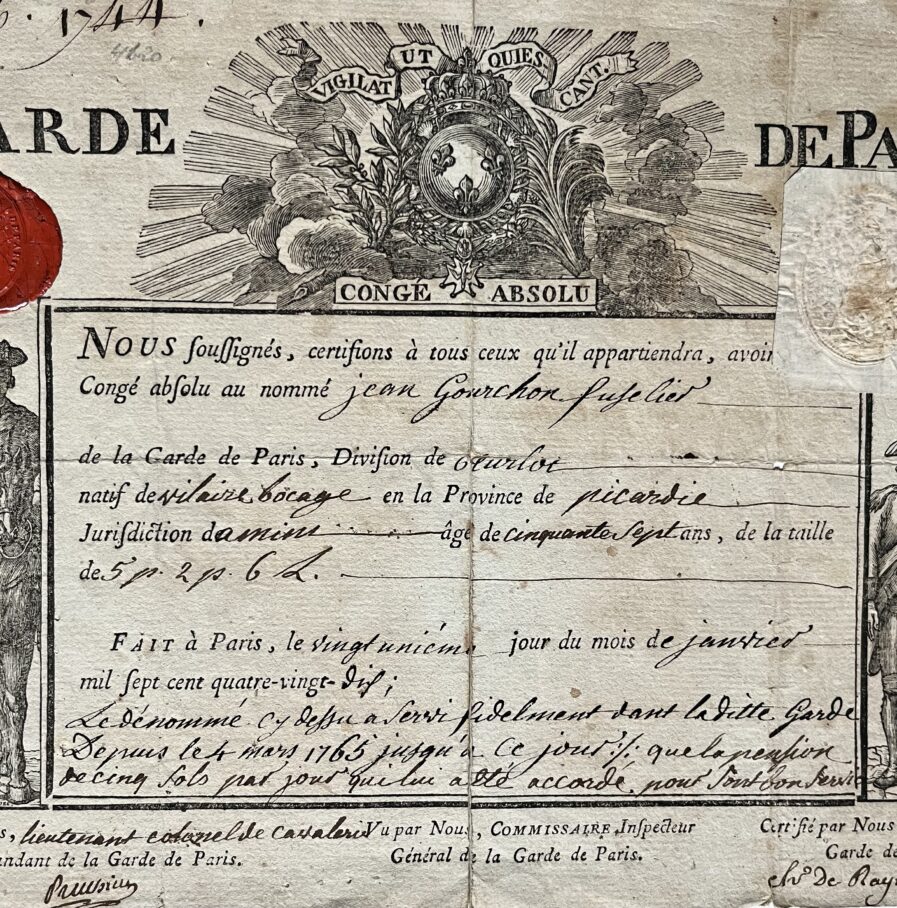 1744.
4620.
VIGILAT UT QUIES CANT.
ARDE DE PA
CONGÉ ABSOLU
NOUS ſouſſignés, certifions à tous ceux qu'il appartiendra, avoir
Congé absolu au nommé jean Gourchon fuselier
de la Garde de Paris, Diviſion de
natif de vilaire bocage en la Province de picardie
Jurisdiction damins âgé de cinquante Sept ans, de la taille
de 5 p. 2 p. 6 L.
FAIT à Paris, le vingt uniéme jour du mois de janvier
mil ſept cent quatre-vingt-dix;
Le dénommé cy dessu a Servi fidelment dant laditte Garde
Depuis le 4 mars 1765 jusqu'à Ce jour ://: que la pension
de cinq Sols par jour que lui a été accordé pour Sont bon Servic
s, lieutenant colonel de Cavalerie Vu par Nous, COMMISSAIRE Inſpecteur Certifié par Nous
ndant de la Garde de Paris. Général de la Garde de Paris. Garde de
chr. De Ray